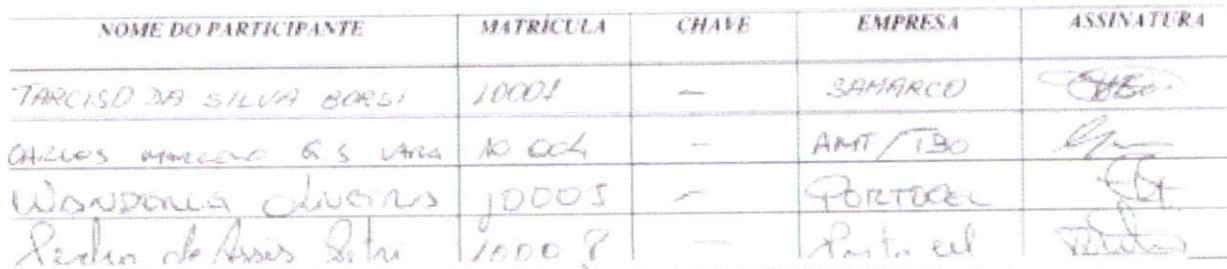 NOME DO PARTICIPANTE MATRÍCULA CHAVE EMPRESA ASSINATURA
TARCISO DA SILVA BORSI 10001 — SAMARCO
CARLOS G S VARA 10 004 — AMT/TBO
OLIVEIRA 10005 — PORTOCEL
Pedro de Assis 10008 — Portocel